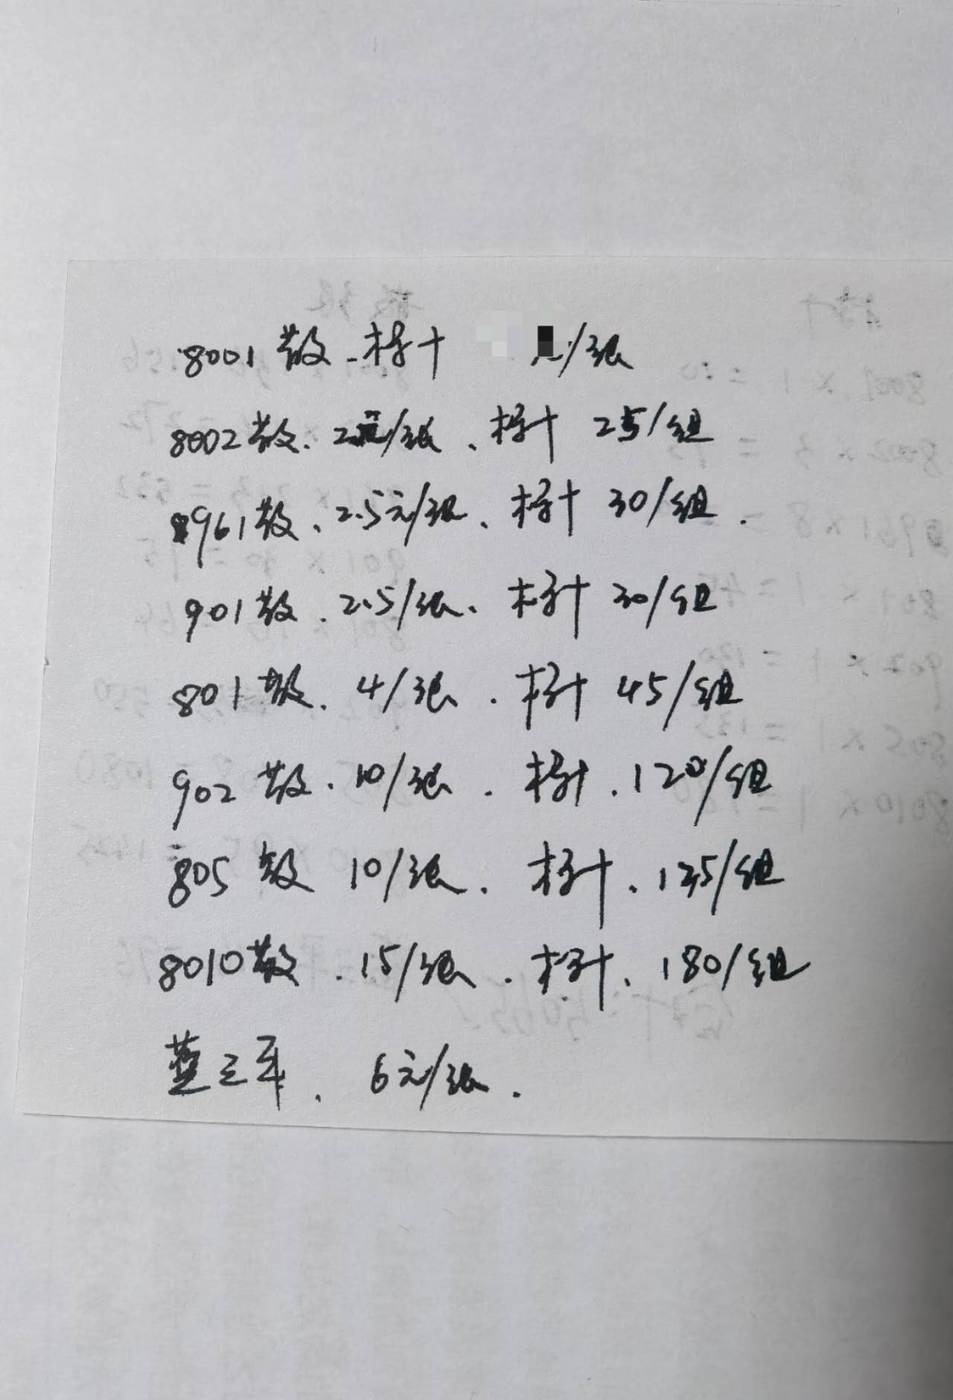 8001散、标十 元/张
8002散、2元/张、标十 25/组
961散、2.5元/张、标十 30/组.
901散、2.5/张、标十 30/组
801散、4/张、标十 45/组
902散、10/张、标十、120/组
805散 10/张、标十、135/组
8010散、15/张、标十、180/组
蓝三军、6元/张.